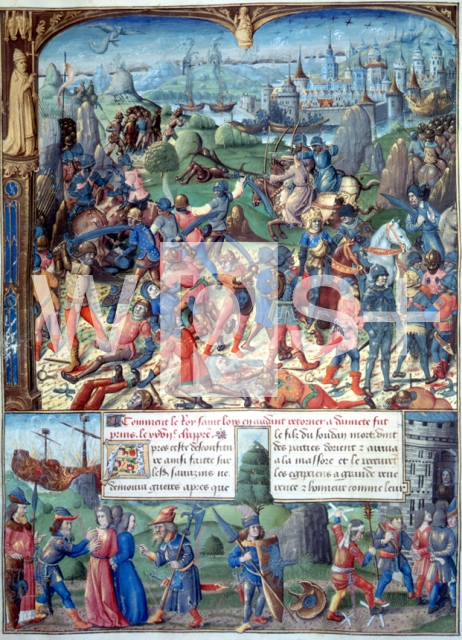 Comment le Roy saint loys en cuidant retorner a damiete fut
prins. le xxvij. chapitre.
pres ceste desconfitu
re ainsi faicte sur
les sarrazins ne
demoura gueres apres que
le filz du souldan mort dont
des parties dorient et arriva
a la massore et le receurent
les egipciens a grande reve
rence et honneur comme leur